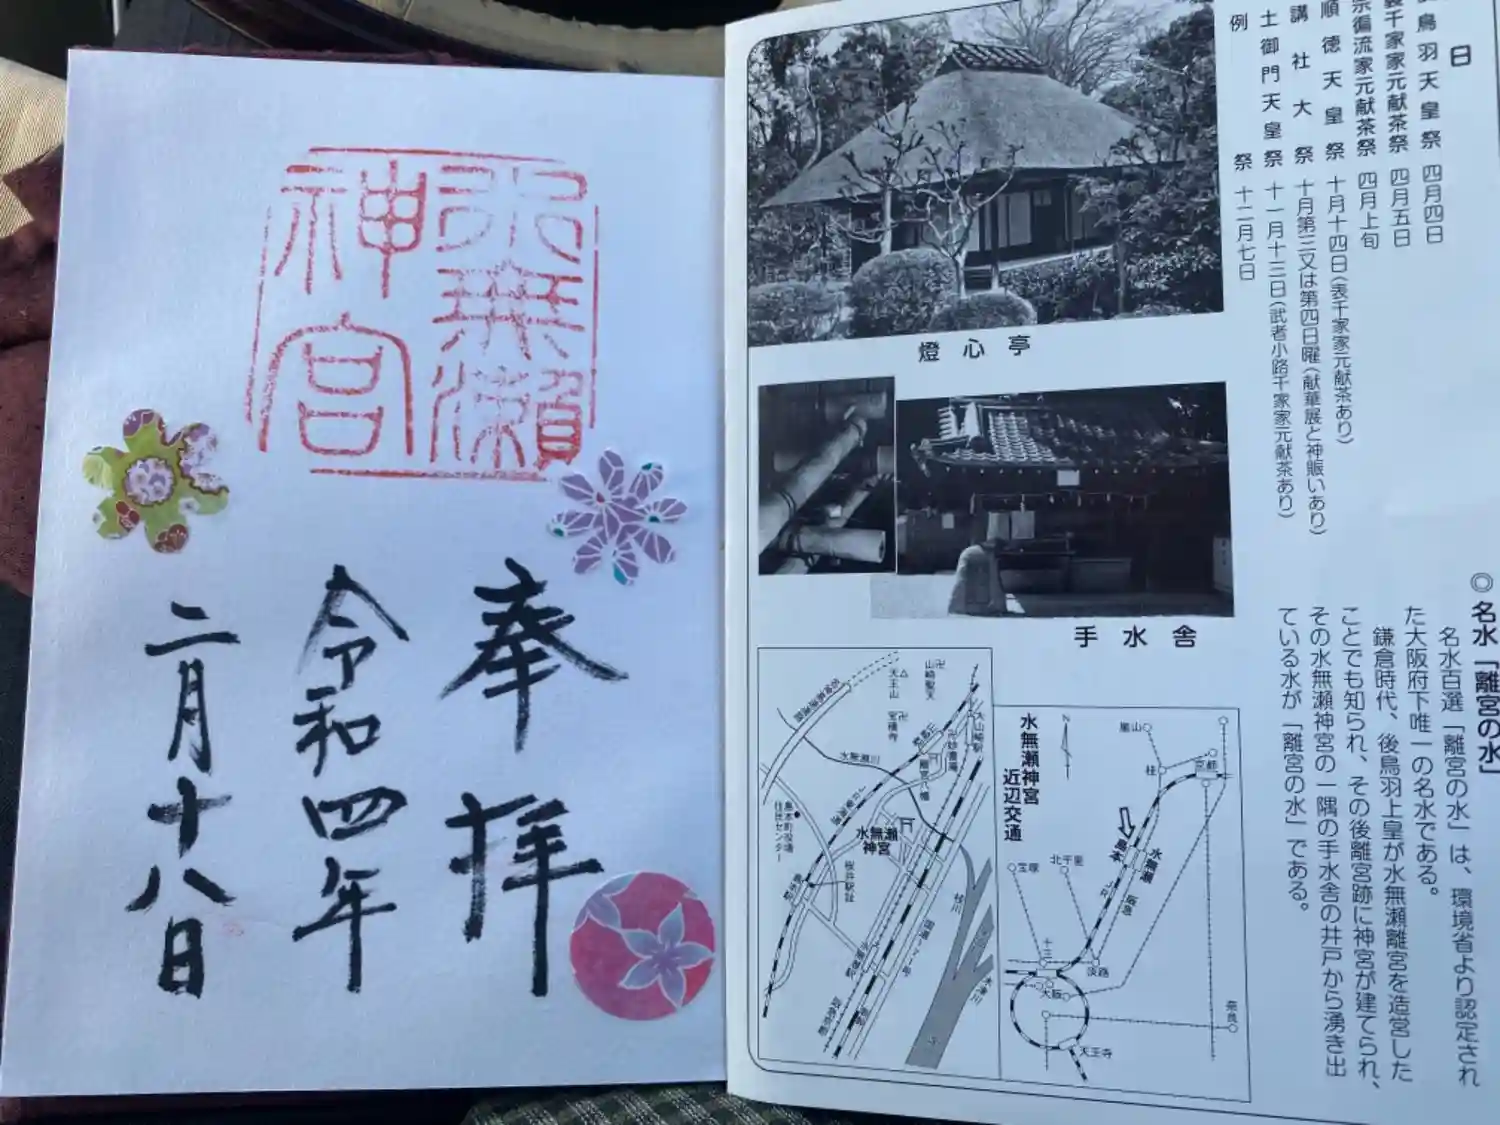 水無瀬
神宮
奉拝
令和四年
二月十八日
日
鳥羽天皇祭 四月四日
裏千家家元献茶祭 四月五日
宗徧流家元献茶祭 四月上旬
順徳天皇祭 十月十四日(表千家家元献茶あり)
講社大祭 十月第三又は第四日曜(献華展と神賑いあり)
土御門天皇祭 十一月十三日(武者小路千家家元献茶あり)
例祭 十二月七日
燈心亭
手水舎
◎名水「離宮の水」
名水百選「離宮の水」は、環境省より認定され
た大阪府下唯一の名水である。
鎌倉時代、後鳥羽上皇が水無瀬離宮を造営した
ことでも知られ、その後離宮跡に神宮が建てられ、
その水無瀬神宮の一隅の手水舎の井戸から湧き出
ている水が「離宮の水」である。
山崎聖天
天王山
宝積寺
大山崎駅
妙喜庵
離宮八幡
水無瀬川
島本町役場
住民センター
水無瀬
神宮
桜井駅址
桂川
水無瀬神宮
近辺交通
N
嵐山
桂
京都
水無瀬
島本
阪急
宝塚
北千里
十三
淡路
大阪
奈良
天王寺